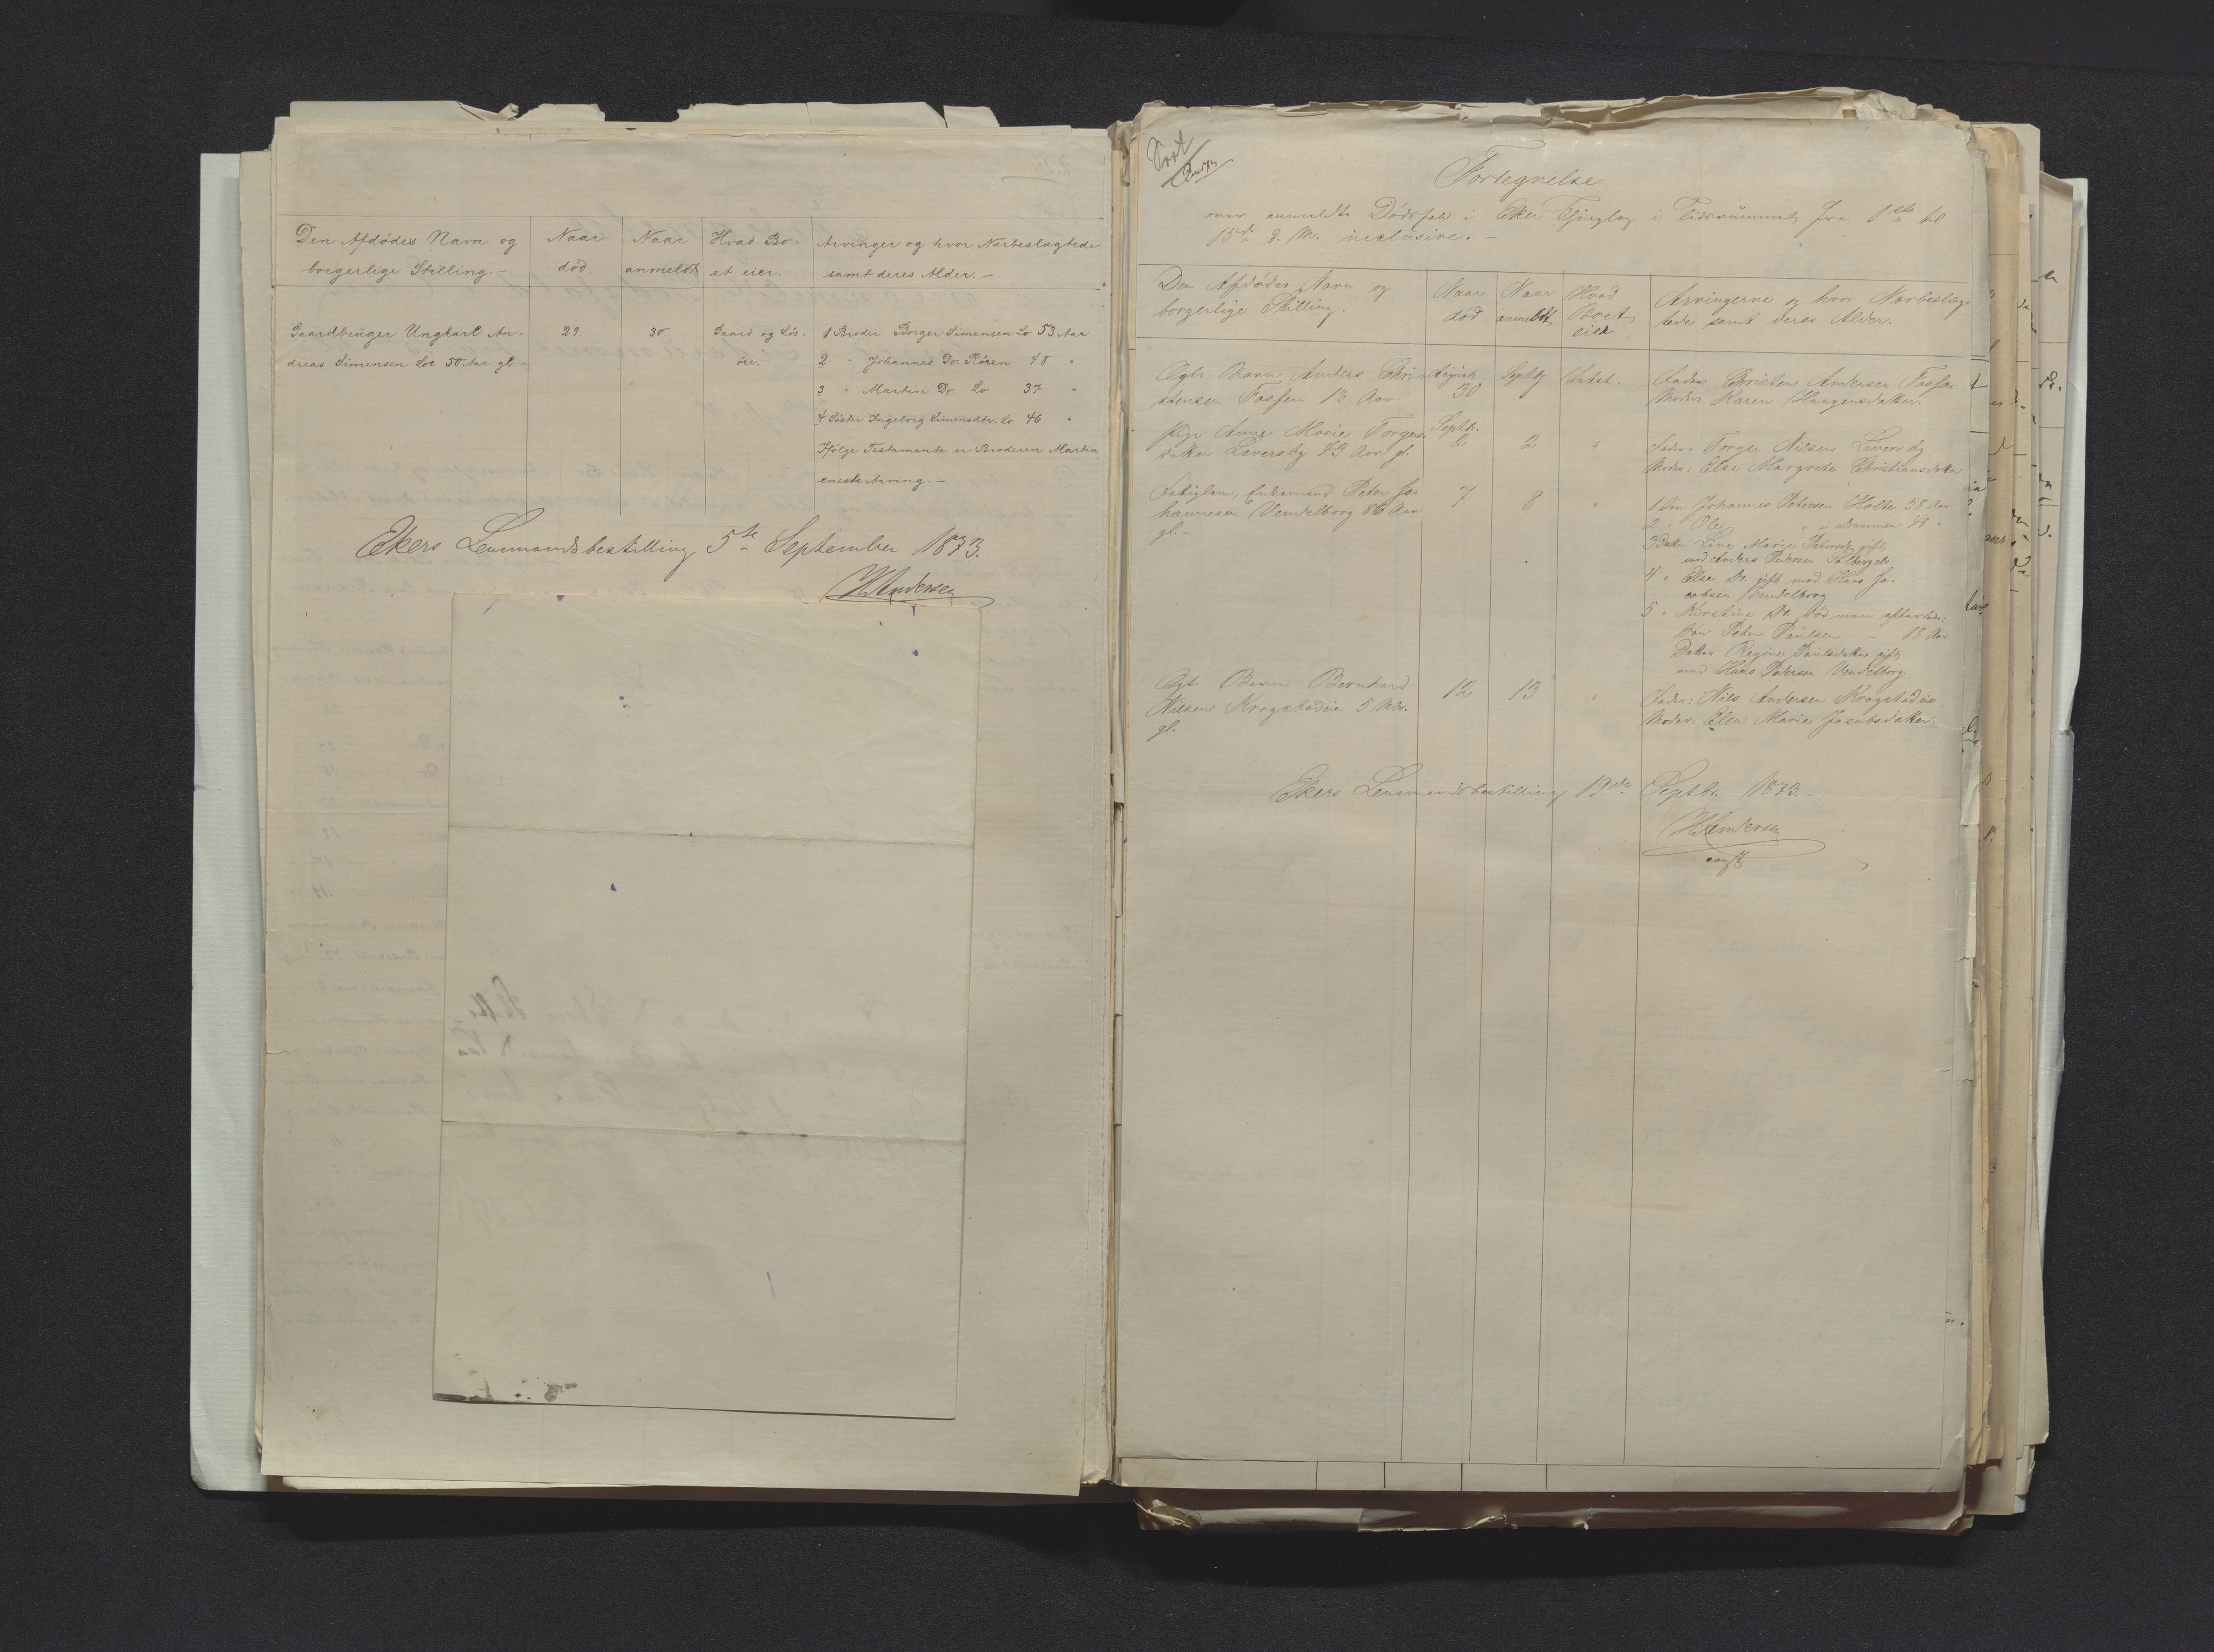 Den Afdødes Navn og
borgerlige Stilling.-
Naar
død.
Naar
anmeldt
Hvad Bo-
et eier.
Arvinger og hvor Nærbeslægtede
samt deres Alder.-
Gaardbruger Ungkarl An-
dreas Simensen Loe 50 Aar gl.-
29.
30
Gaard og Løs-
øre.
1 Broder Borger Simensen Lo 53 Aar
2 " Johannes Do. Røren 48 "
3 " Martin Do. Lo 37 "
4 Søster Ingeborg Simensdtr. Lo 46 "
Ifølge Testamente er Broderen Martin
eneste Arving.-
Ekers Lensmandsbestilling 5te September 1873.
H. Andersen
Fortegnelse
over anmeldte Dødsfald i Eker Thinglag i Tidsrummet fra 1ste til
15de d. M. inclusive.-
Den Afdødes Navn og
borgerlige Stilling.
Naar
død
Naar
anmeldt
Hvad
Boet
eier
Arvingerne og hvor Nærbeslæg-
tede samt deres Alder.
Ægte Barn Anders Chri-
stensen Fossen 12 Aar
August
30
Septbr
Intet.
Fader: Christen Andersen Fossen
Moder: Karen Haagensdatter.
Pige Anne Marie Torgers-
datter Leversby 43 Aar gl.
Septbr.
2
2
"
Fader: Torger Nilsen Leversby
Moder: Else Margrete Christiansdatter
Fattiglem, Enkemand Peter Jo-
hannesen Vendelborg 86 Aar
gl.-
7
8
"
1 Søn Johannes Petersen Holte 58 Aar
2 " Ole " i Drammen 48 "
3 Datter Line Marie Petersdtr gift
med Anders Pedersen Solbergels
4 " Else Do. gift med Hans Ja-
cobsen Vendelborg
5 " Kirstine Do. død men efterladt:
Søn Peter Paulsen - 18 Aar
Datter Regine Paulsdatter gift
med Hans Pedersen Vendelborg.
Ægte Barn Bernhard
Nilsen Krogstadeie 5 Mdr.
gl.
12
13
"
Fader: Nils Andersen Krogstadeie
Moder: Elen Marie Jacobsdatter.
Ekers Lensmandsbestilling 19de Septbr. 1873.-
H. Andersen
const